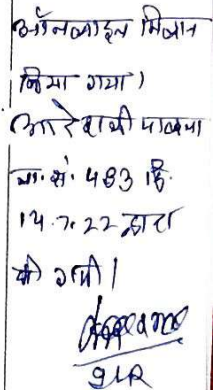 ऑनलाइन मिलान
किया गया।
आदेश की पालना
ना. सं. 483 दि.
14.7.22 द्वारा
की गयी।